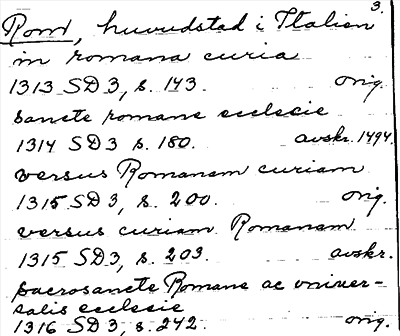 3.
Rom, huvudstad i Italien
in romana curia
1313 SD 3, s. 143. orig.
sancte romane ecclecie
1314 SD 3 s. 180. avskr. 1494.
versus Romanam curiam
1315 SD 3, s. 200. orig.
versus curiam Romanam
1315 SD 3, s. 203. avskr.
sacrosancte Romane ac univer-
salis ecclesie
1316 SD 3, s. 242. orig.